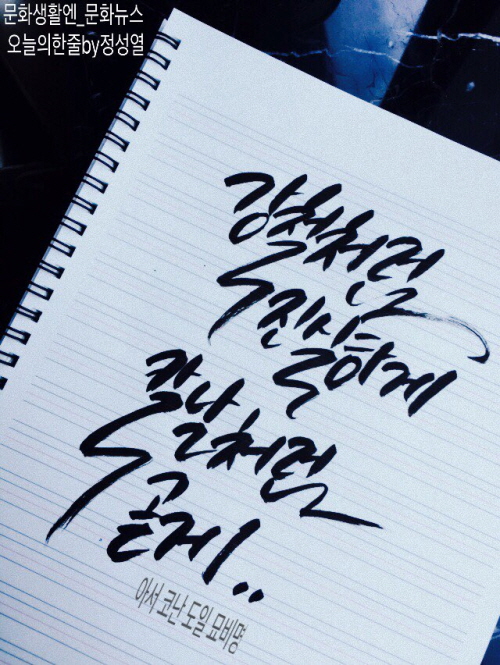 문화생활엔_문화뉴스
오늘의한줄by정성열
강철처럼
진실하게
칼날처럼
곧게..
아서 코난 도일 묘비명